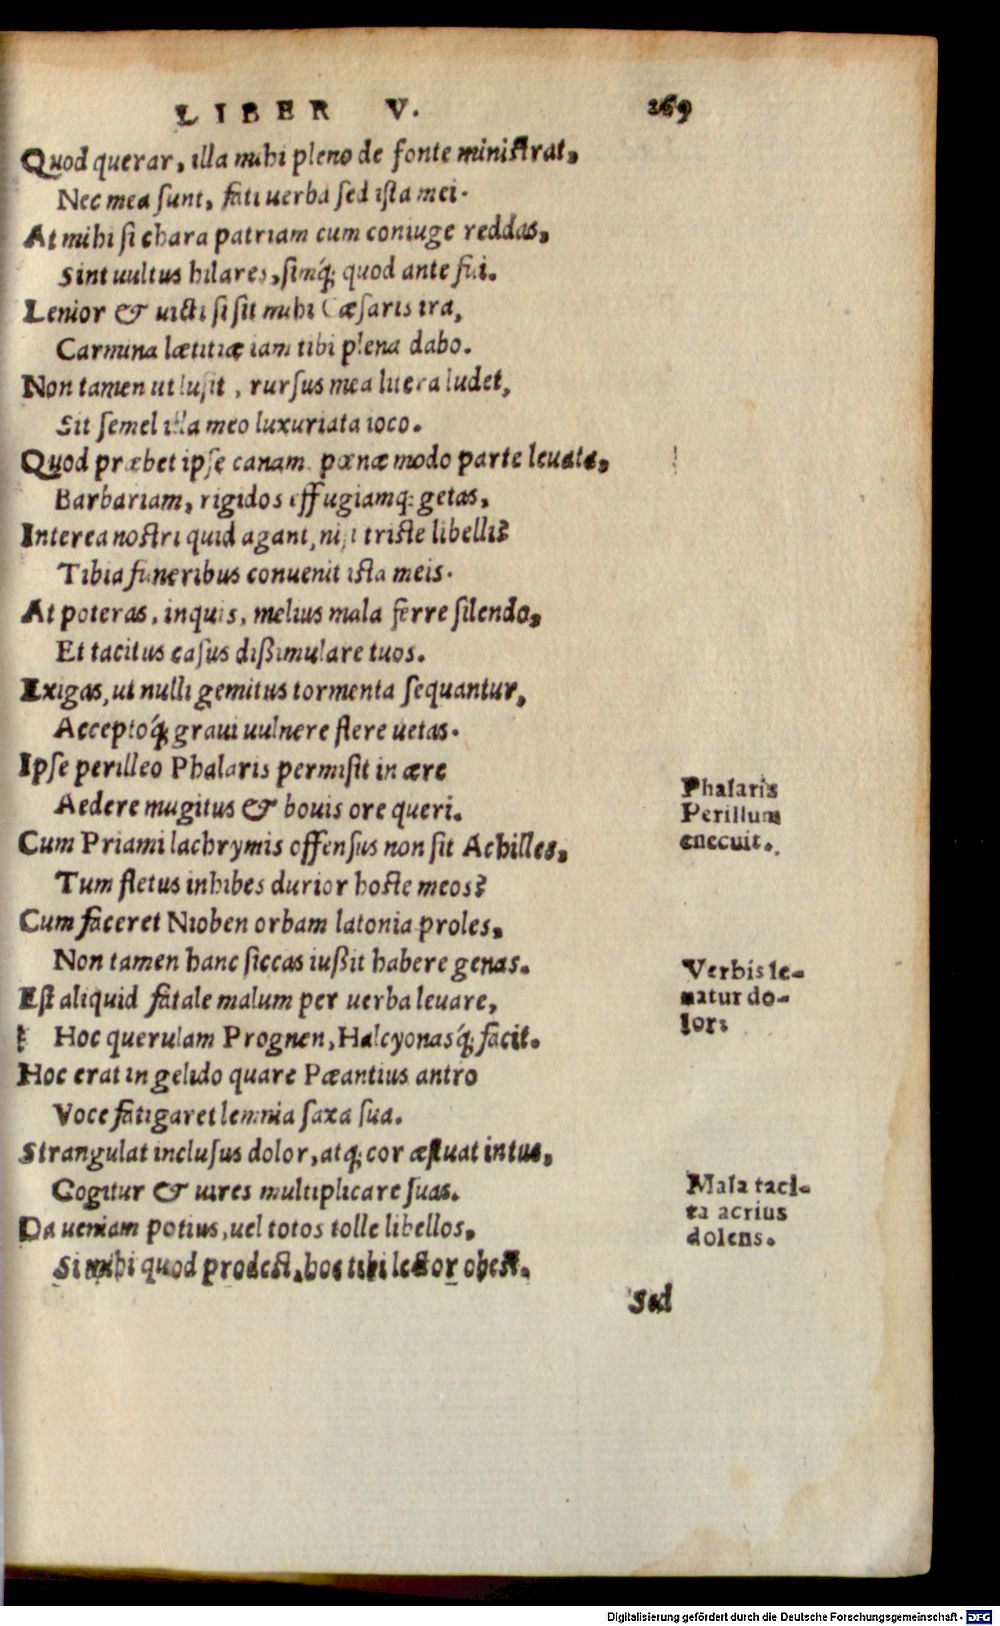 LIBER V. 269
Quod querar, illa mihi pleno de fonte ministrat,
Nec mea sunt, fati uerba sed ista mei.
At mihi si chara patriam cum coniuge reddas,
Sint uultus hilares, simq́; quod ante fui.
Lenior & uicti si sit mihi Cæsaris ira,
Carmina lætitiæ iam tibi plena dabo.
Non tamen ut lusit, rursus mea litera ludet,
Sit semel illa meo luxuriata ioco.
Quod præbet ipse canam pœnæ modo parte leuata,
Barbariam, rigidos effugiamq; getas,
Interea nostri quid agant, nisi triste libelli?
Tibia funeribus conuenit ista meis.
At poteras, inquis, melius mala ferre silendo,
Et tacitus casus dißimulare tuos.
Exigas, ut nulli gemitus tormenta sequantur,
Acceptoq́; graui uulnere flere uetas.
Ipse perilleo Phalaris permisit in ære
Aedere mugitus & bouis ore queri.
Cum Priami lachrymis offensus non sit Achilles,
Tum fletus inhibes durior hoste meos?
Cum faceret Nioben orbam latonia proles,
Non tamen hanc siccas iußit habere genas.
Est aliquid fatale malum per uerba leuare,
Hoc querulam Prognen, Halcyonasq́; facit.
Hoc erat in gelido quare Pæantius antro
Voce fatigaret lemnia saxa sua.
Strangulat inclusus dolor, atq; cor æstuat intus,
Cogitur & uires multiplicare suas.
Da ueniam potius, uel totos tolle libellos,
Si mihi quod prodest, hoc tibi lector obest.
Sed
Phalaris
Perillum
enecuit.
Verbis le-
natur do-
lor:
Mala taci-
ta acrius
dolens.
Digitalisierung gefördert durch die Deutsche Forschungsgemeinschaft - DFG